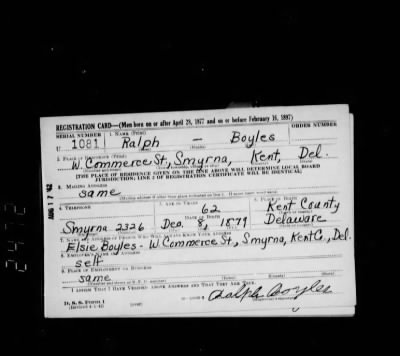 REGISTRATION CARD—(Men born on or after April 28, 1877 and on or before February 16, 1897)
SERIAL NUMBER 1. NAME (Print) ORDER NUMBER
U 1081 Ralph — Boyles
2. PLACE OF RESIDENCE (Print)
W. Commerce St, Smyrna, Kent, Del.
[THE PLACE OF RESIDENCE GIVEN ON THE LINE ABOVE WILL DETERMINE LOCAL BOARD
JURISDICTION; LINE 2 OF REGISTRATION CERTIFICATE WILL BE IDENTICAL]
3. MAILING ADDRESS
same
[Mailing address if other than place indicated on line 2. If same insert word same]
4. TELEPHONE 5. AGE IN YEARS 6. PLACE OF BIRTH
62 Kent County
DATE OF BIRTH
Smyrna 2326 Dec. 8, 1879 Delaware
7. NAME AND ADDRESS OF PERSON WHO WILL ALWAYS KNOW YOUR ADDRESS
Elsie Boyles - W Commerce St., Smyrna, Kent C., Del.
8. EMPLOYER'S NAME AND ADDRESS
self
9. PLACE OF EMPLOYMENT OR BUSINESS
same
I AFFIRM THAT I HAVE VERIFIED ABOVE ANSWERS AND THAT THEY ARE TRUE.
D. S. S. FORM 1
(Revised 4-1-42) (over)
Ralph Boyles
AUG 17 42
2472